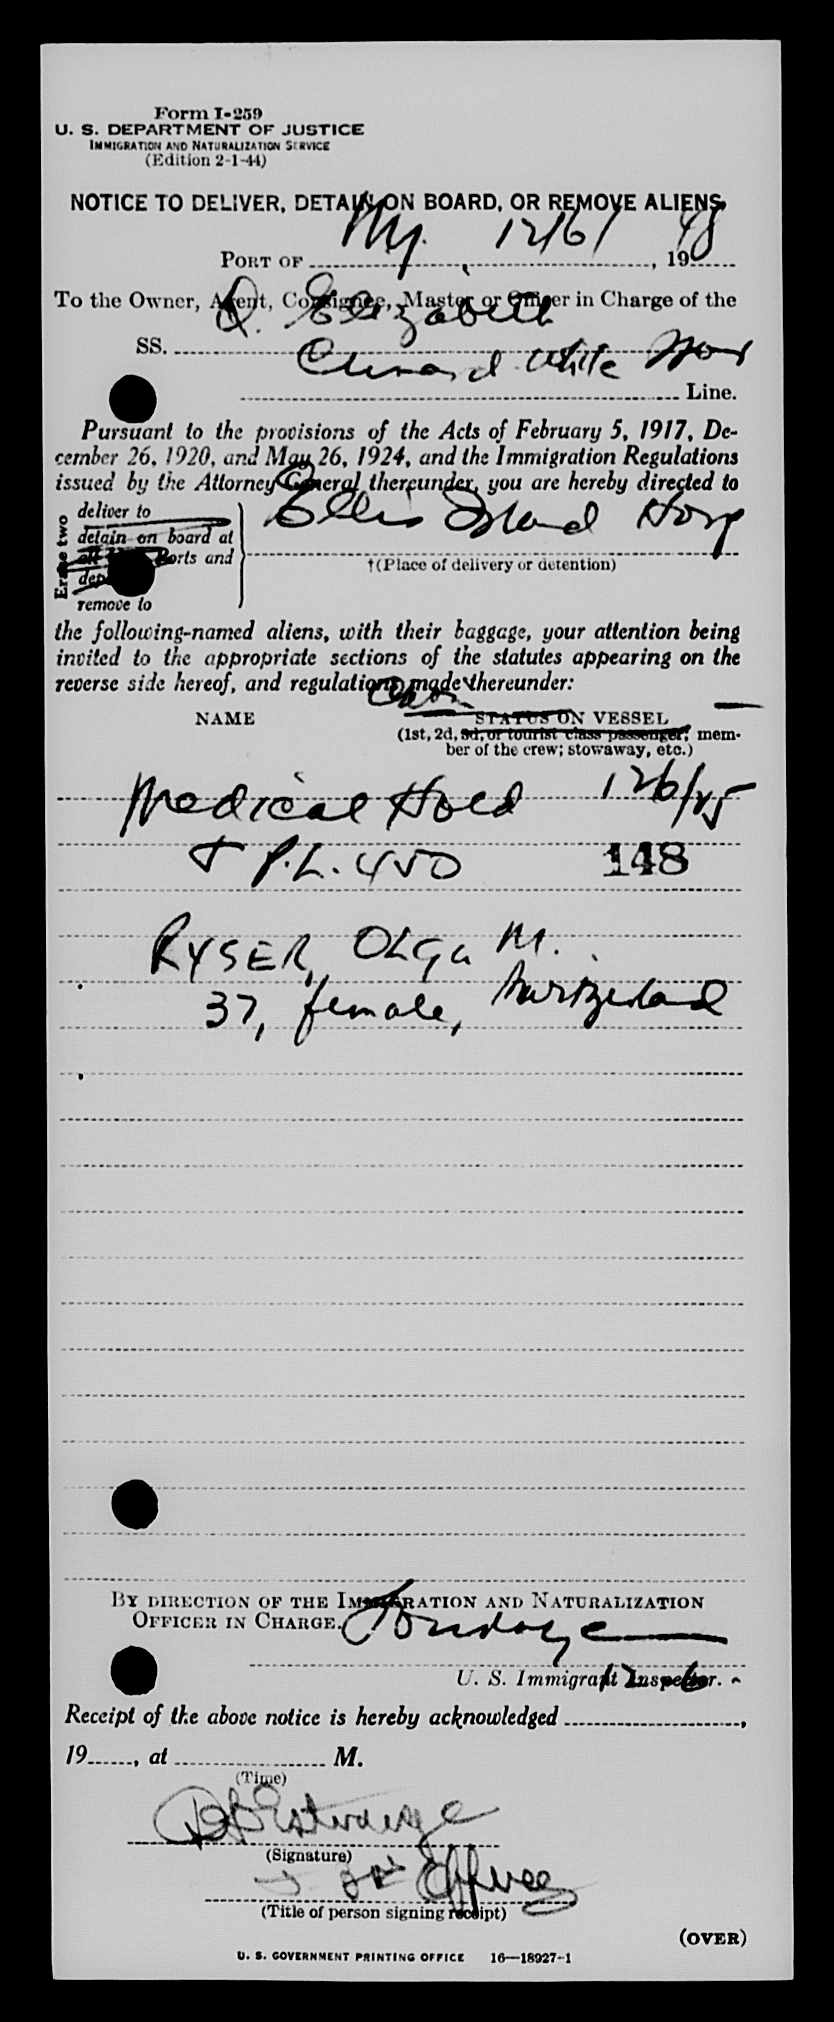 Form I-259
U. S. DEPARTMENT OF JUSTICE
IMMIGRATION AND NATURALIZATION SERVICE
(Edition 2-1-44)
NOTICE TO DELIVER, DETAIN ON BOARD, OR REMOVE ALIENS
PORT OF NY. 12/6/ , 1948
To the Owner, Agent, Consignee, Master or Officer in Charge of the
SS. Q. Elizabeth
Cunard White Star Line.
Pursuant to the provisions of the Acts of February 5, 1917, De-
cember 26, 1920, and May 26, 1924, and the Immigration Regulations
issued by the Attorney General thereunder, you are hereby directed to
Erase two
deliver to
detain on board at
all U. S. Ports and
deport
remove to
Ellis Island Hosp
†(Place of delivery or detention)
the following-named aliens, with their baggage, your attention being
invited to the appropriate sections of the statutes appearing on the
reverse side hereof, and regulations made thereunder:
Cabin
NAME STATUS ON VESSEL
(1st, 2d, 3d, or tourist class passenger; mem-
ber of the crew; stowaway, etc.)
Medical Hold 126/45
+ P.L. 450 148
RYSER, OLGA M.
37, female, Switzerland
BY DIRECTION OF THE IMMIGRATION AND NATURALIZATION
OFFICER IN CHARGE.
U. S. Immigrant Inspector.
Receipt of the above notice is hereby acknowledged ,
19 , at M.
(Time)
(Signature)
(Title of person signing receipt)
(OVER)
U. S. GOVERNMENT PRINTING OFFICE 16—18927-1